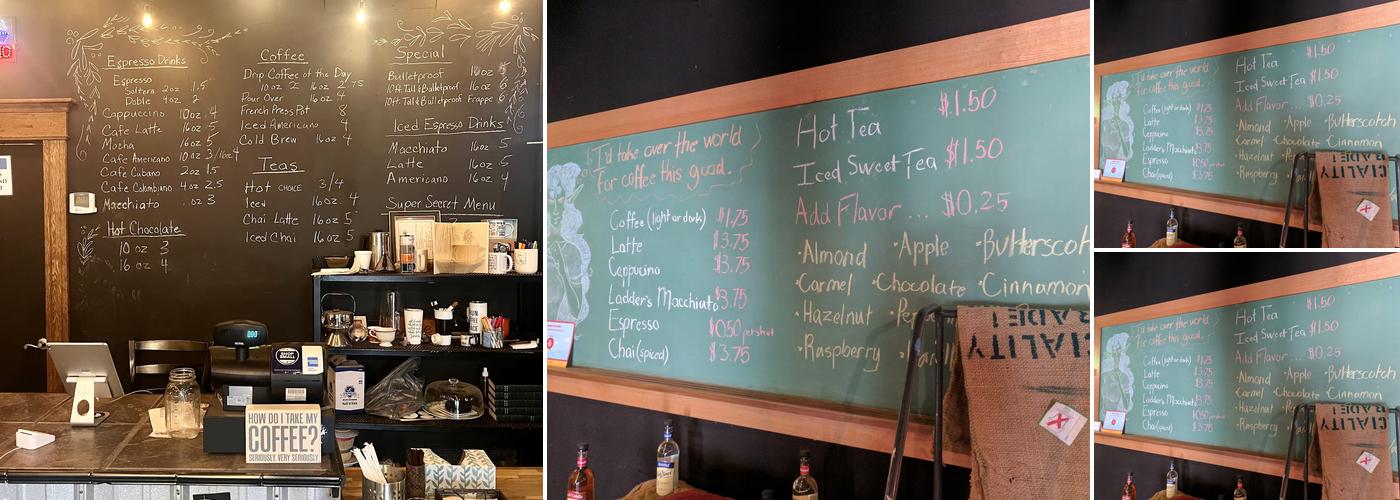 Espresso Drinks
Espresso
Soltero 2oz 1.5
Doble 4oz 2
Cappuccino 10oz 4
Cafe Latte 16oz 5
Mocha 16oz 5
Cafe Americano 10oz 3/16oz 4
Cafe Cubano 2oz 1.5
Cafe Colombiano 4oz 2.5
Macchiato oz 3
Hot Chocolate
10 oz 3
16 oz 4
Coffee
Drip Coffee of the Day
10oz 2 16oz 2.75
Pour Over 16oz 4
French Press Pot 8
Iced Americano 4
Cold Brew 16oz 4
Teas
Hot CHOICE 3/4
Iced 16oz. 4
Chai Latte 16oz 5
Iced Chai 16oz 5
Special
Bulletproof 16oz 5
10ft. Tall & Bulletproof 6
10ft. Tall & Bulletproof Frappe 6
Iced Espresso Drinks
Macchiato 16oz 5
Latte 16oz 5
Americano 16oz 4
Super Secret Menu
?
SHOP SMALL
HOW DO I TAKE MY
COFFEE?
SERIOUSLY. VERY SERIOUSLY
I'd take over the world
for coffee this good.
Coffee (light or dark) $1.75
Latte $3.75
Cappucino $3.75
Ladder's Macchiato $3.75
Espresso $0.50 per shot
Chai (spiced) $3.75
Hot Tea $1.50
Iced Sweet Tea $1.50
Add Flavor... $0.25
·Almond ·Apple ·Butterscot
·Carmel ·Chocolate ·Cinnamon
·Hazelnut
·Raspberry
CIALITY
I'd take over the world
for coffee this good.
Coffee (light or dark) $1.75
Latte $3.75
Cappucino $3.75
Ladder's Macchiato $3.75
Espresso $0.50 per shot
Chai (spiced) $3.75
Hot Tea $1.50
Iced Sweet Tea $1.50
Add Flavor... $0.25
·Almond ·Apple ·Butterscotch
·Carmel ·Chocolate ·Cinnamon
·Hazelnut
·Raspberry
CIALITY
I'd take over the world
for coffee this good.
Coffee (light or dark) $1.75
Latte $3.75
Cappucino $3.75
Ladder's Macchiato $3.75
Espresso $0.50 per shot
Chai (spiced) $3.75
Hot Tea $1.50
Iced Sweet Tea $1.50
Add Flavor... $0.25
·Almond ·Apple ·Butterscotch
·Carmel ·Chocolate ·Cinnamon
·Hazelnut
·Raspberry
CIALITY